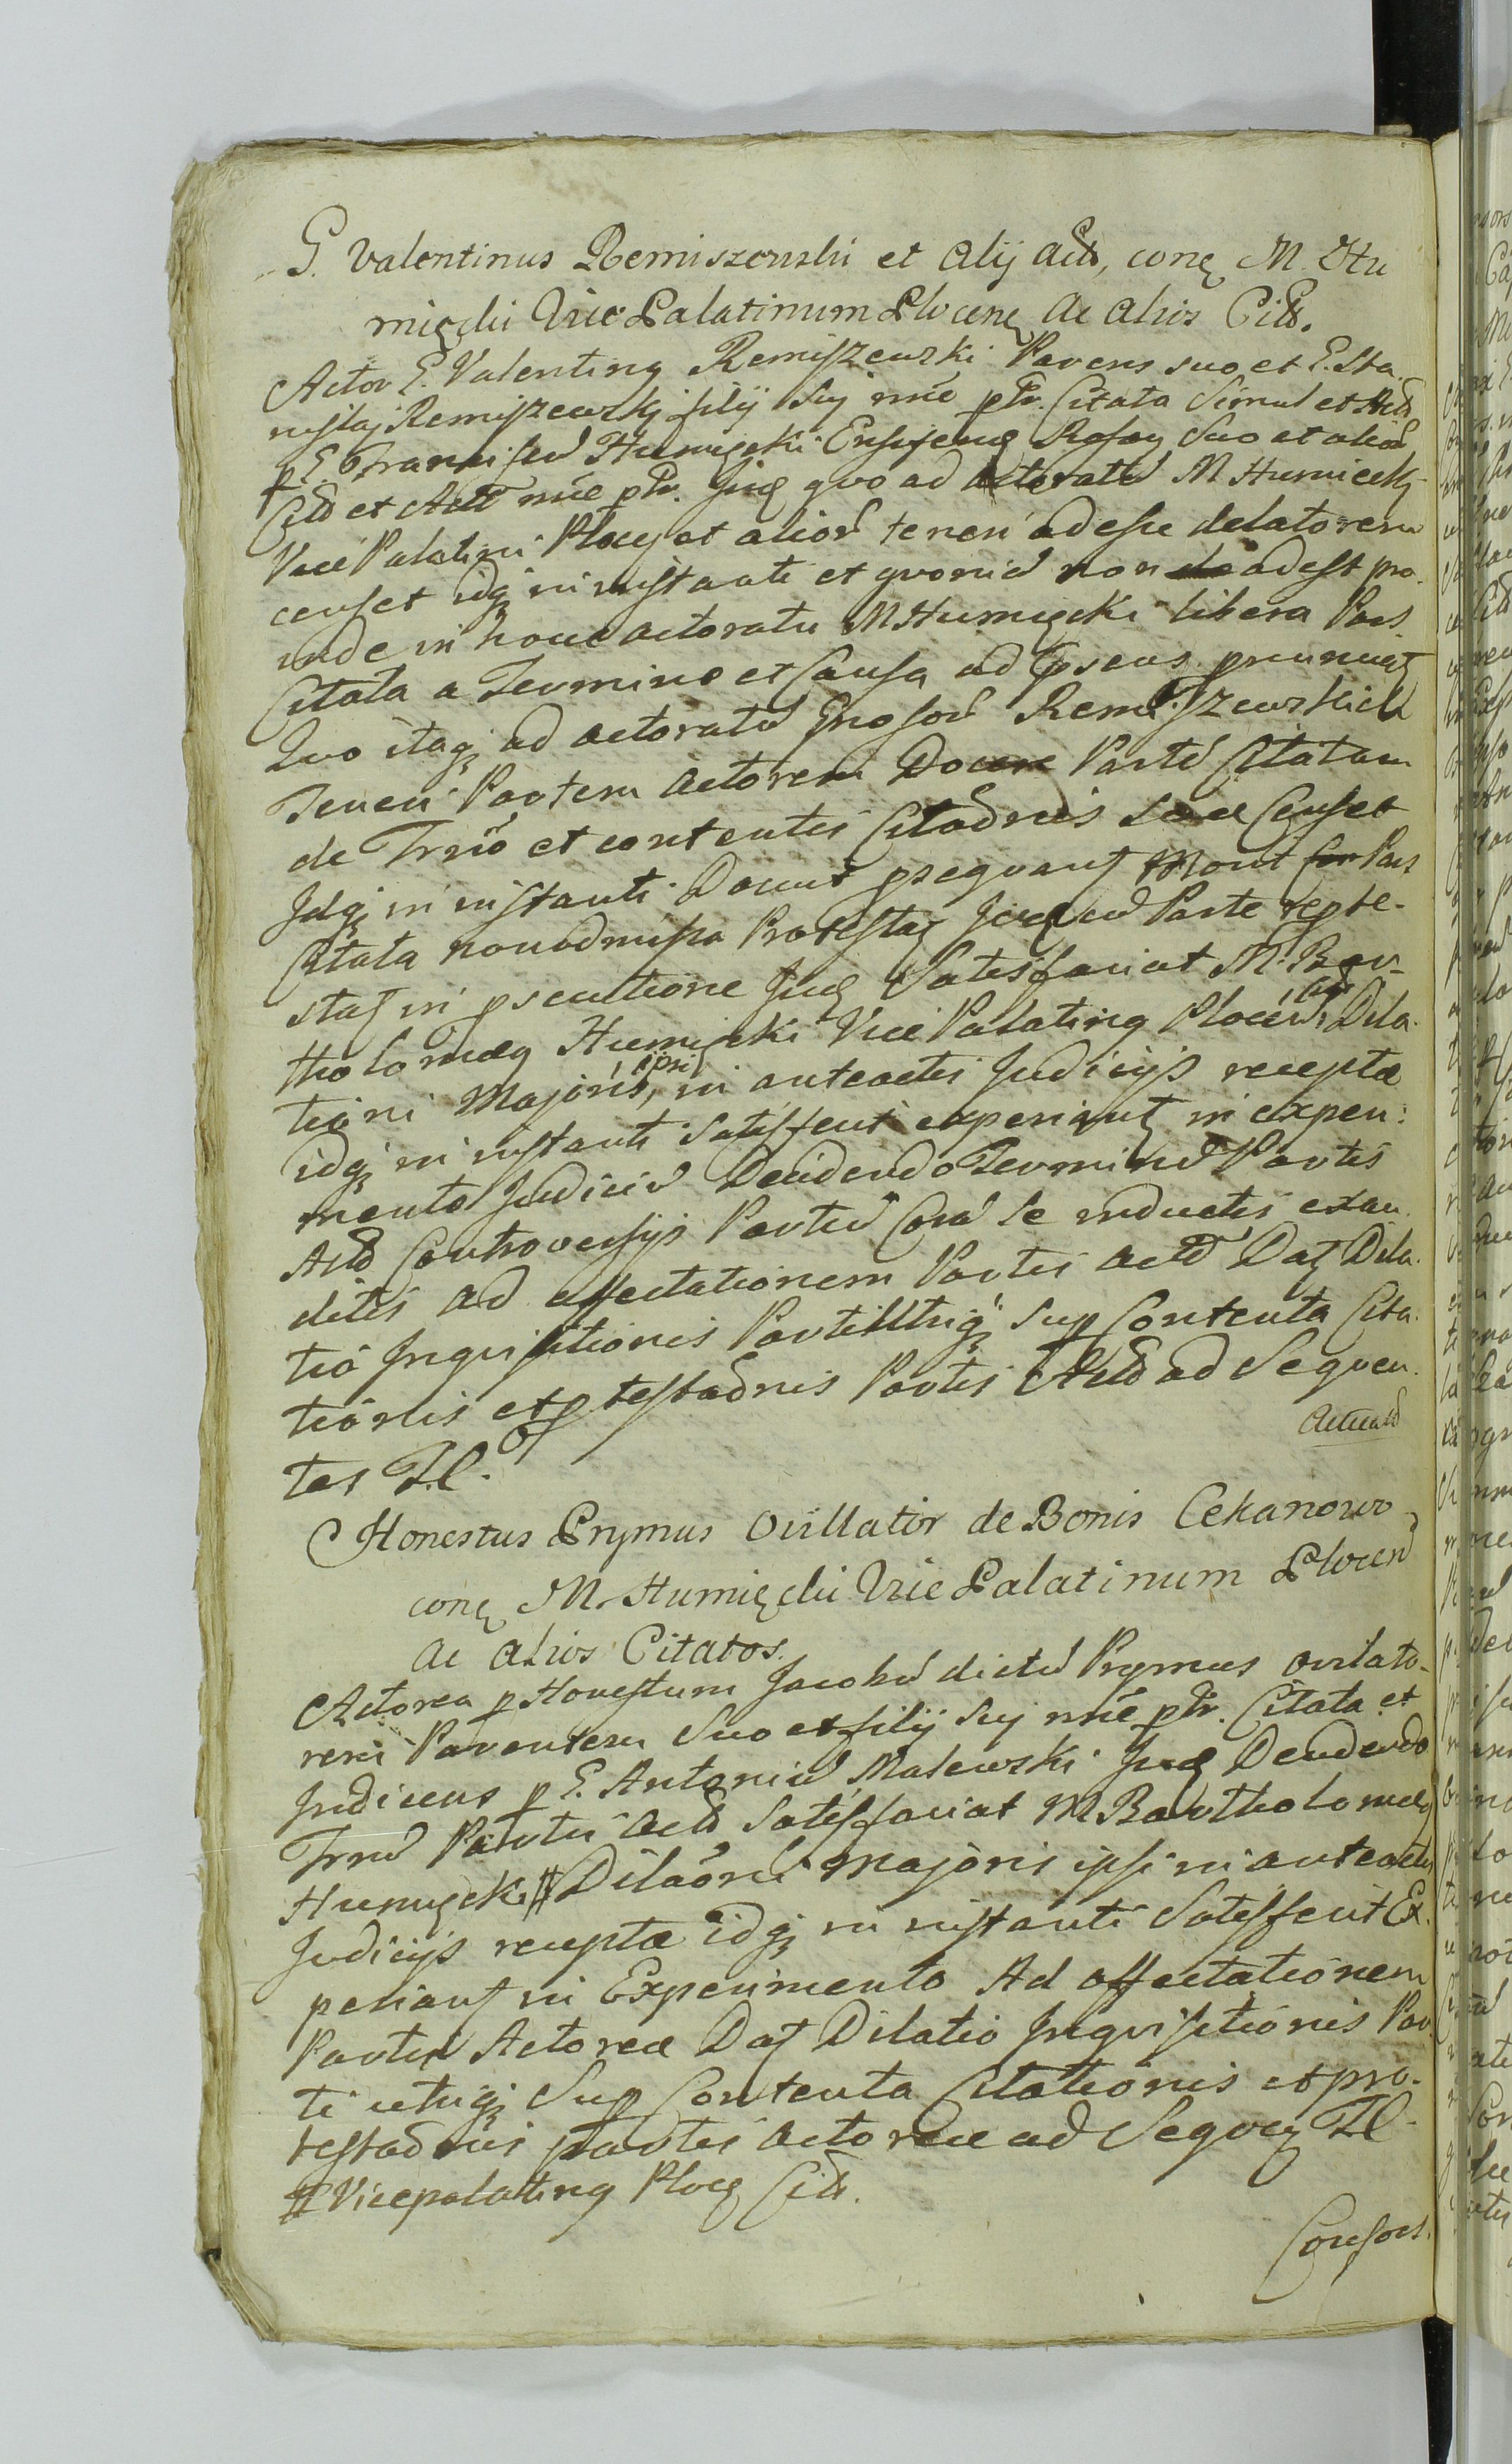 G. Valentinus Remiszewski et Alij Act, conę M. Hu
mięcki Vice Palatinum Plocenę Ac Alios Citt.
Actor G. Valentinę Remiszewski Parens suo et G. Sta.
nislaj Remiszewskj filij Suj nñe ptr. Citata Simul et
p G. Franciscu Humięcki Ensiferuę Rosaę Suo et alior
Citt et nñe ptr. Judę quo ad Actoratu M Humiecki
Vice Palatini Plocę et alior teneri adesse delatorem
censet idqꝫ in instanti et quoniã non adest pro
inde in hocce actoratu M Humięcki libera Pars
Citata a Termino et Causa ad pronunciatꝫ
Quo itaqꝫ ad actoratu Gnosor Remiszewskich
Teneri Partem Actorem Docere Parte Citatam
de Trnö et contentis Citaõnis Suae Censet
Idqꝫ in instanti Docuit psequantꝫ Pars
Citata non admissa Protestatꝫ Parte repte-
statꝫ in psecutione Judę Satisfaciat M. Bar-
tholomæę Humięcki Vice Palatinę Plocen Dila-
tioni Majoris, ipsi in anteactis Judicijs recepta
idqꝫ in instanti Satisfecit experiantꝫ in experi:
mento Judiciu Decidendo Terminu Partis
Act Controversijs Partiu Cora se inductis exau
ditis ad affectationem Partis Act Datꝫ Dila-
tio Inquisitionis Parti Utriqꝫ Sup Contenta Cita-
tionis et ptestaõnis Partis Act ad Sequen
tes T.C.
Actuatꝫ
Honestus Prymus Ovillator de Bonis Cekanowo
conę M. Humięcki Vice Palatinum Plocen
Ac Alios Citatos.
Actorea p Honestum Jacobu dictu Prymus ovilato-
rem Parentem Suo et filij Suj nñe ptr. Citata et
Judicens p G. Antoniu Malewski Judę Decidendo
Trnu Partis Act Satisfaciat M Bartholomæę
Humięcki # Dilaõni Majoris ipsi in anteactis
Judicijs recepta idqꝫ in instanti Satisfecit Ex-
periantꝫ in Experimento Ad affectationem
Partis Actorea Datꝫ Dilatio Inquisitionis Par
ti utriqꝫ Sup Contenta Citationis et pro-
testaõnis partis Actoreae ad Sequeę T.C.
# Vicepalatinę Plocę Citt.
Consors.